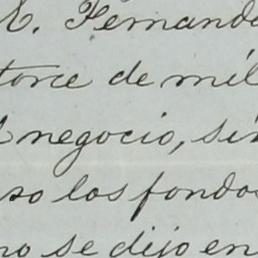 E. Fernand
torce de mil
negocio, sin
so los fondo
no se dijo en